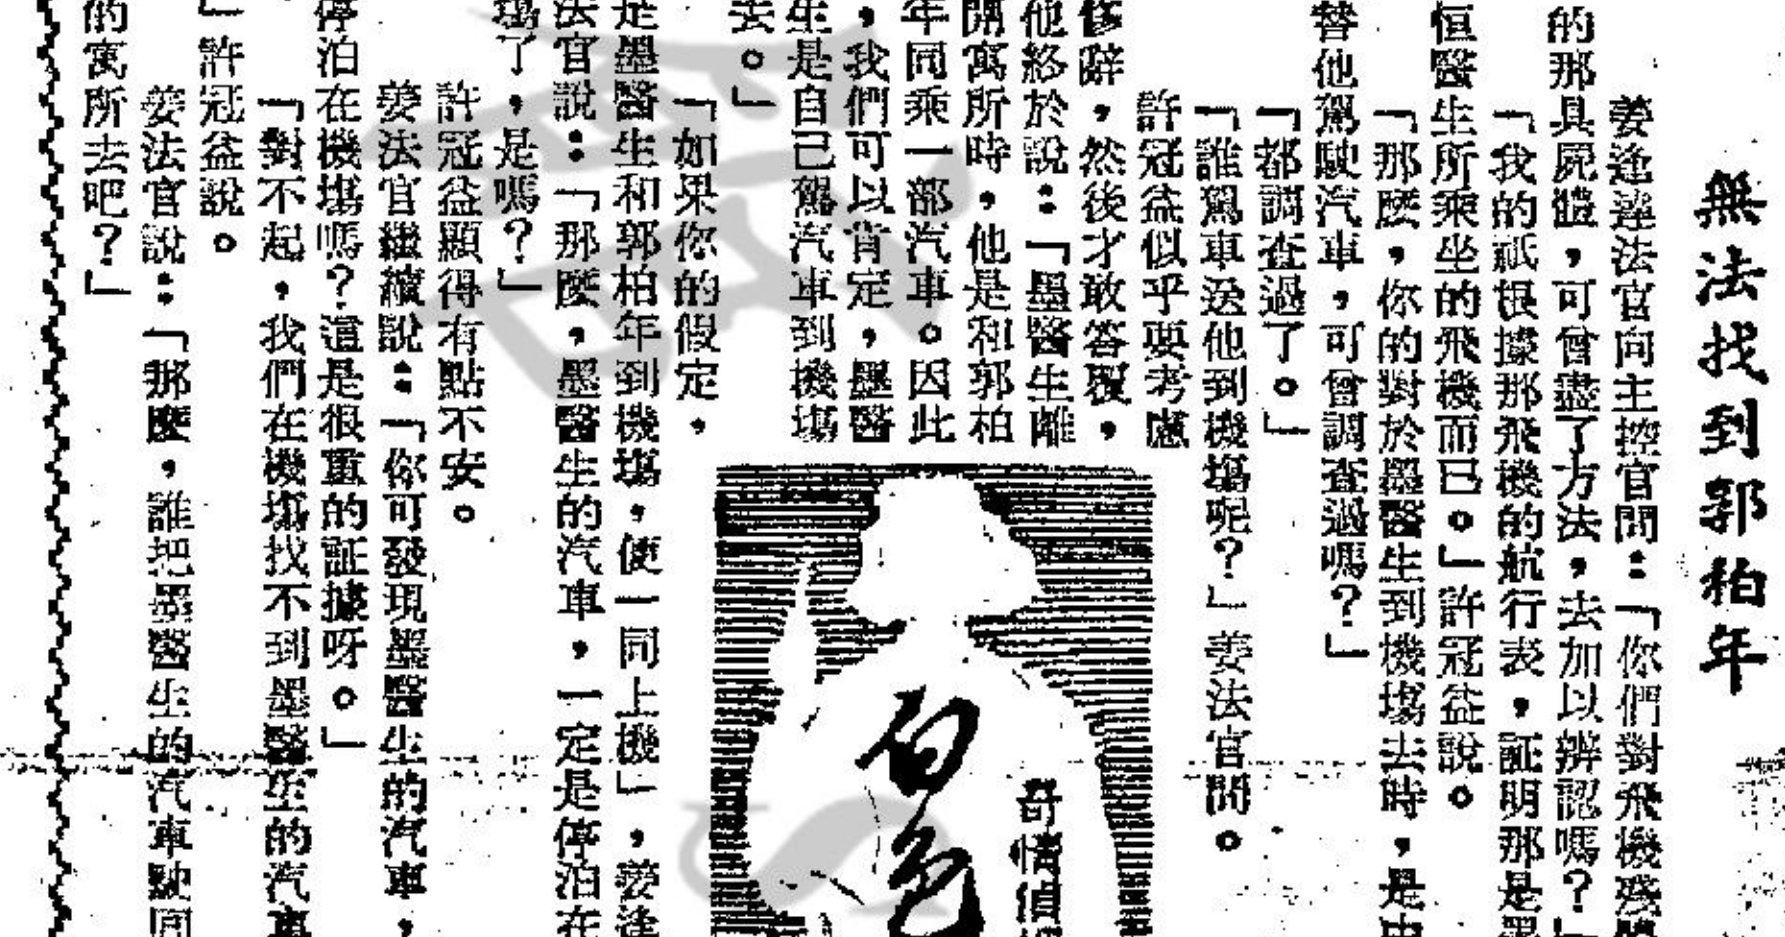 無法找到郭柏年
姜逢達法官向主控官問：「你們對飛機殘
的那具屍體，可曾盡了方法，去加以辨認嗎？」
「我的祇根據那飛機的航行表，証明那是墨
恒醫生所乘坐的飛機而已。」許冠益說。
「那麽，你的對於墨醫生到機場去時，是由
替他駕駛汽車，可曾調查過嗎？」
「都調查過了。」
「誰駕車送他到機場呢？」姜法官問。
許冠益似乎要考慮
修辭，然後才敢答覆，
他終於說：「墨醫生離
開寓所時，他是和郭柏
年同乘一部汽車。因此
，我們可以肯定，墨醫
生是自己駕汽車到機場
去。」
「如果你的假定，
是墨醫生和郭柏年到機場，便一同上機」，姜逢
法官說：「那麽，墨醫生的汽車，一定是停泊在
場了，是嗎？」
許冠益顯得有點不安。
姜法官繼續說：「你可發現墨醫生的汽車，
停泊在機場嗎？這是很重的証據呀。」
「對不起，我們在機場找不到墨醫生的汽車
」許冠益說。
姜法官說：「那麽，誰把墨醫生的汽車駛回
的寓所去吧？」
奇情偵
白色